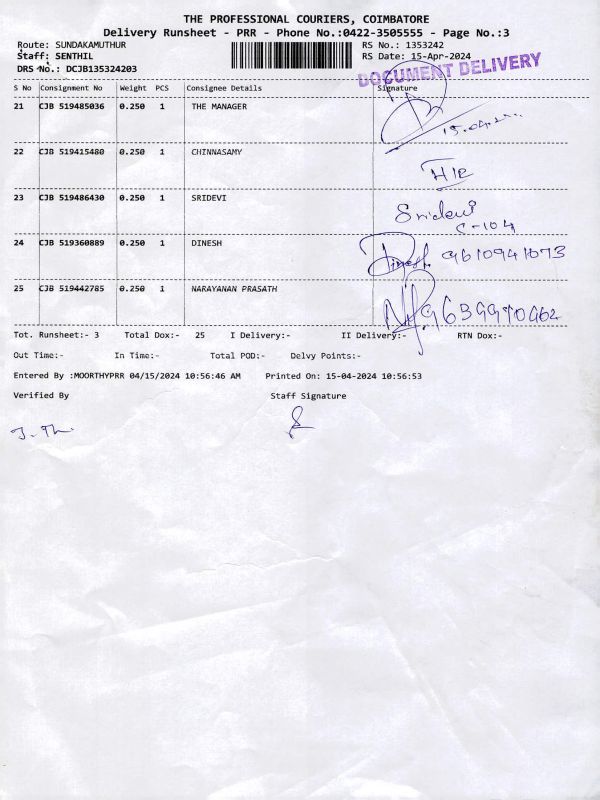 THE PROFESSIONAL COURIERS, COIMBATORE
Delivery Runsheet - PRR - Phone No.:0422-3505555 - Page No.:3
Route: SUNDAKAMUTHUR RS No.: 1353242
Staff: SENTHIL RS Date: 15-Apr-2024
DRS No.: DCJB135324203
DOCUMENT DELIVERY
S No Consignment No Weight PCS Consignee Details Signature
21 CJB 519485036 0.250 1 THE MANAGER
22 CJB 519415480 0.250 1 CHINNASAMY
23 CJB 519486430 0.250 1 SRIDEVI Sridevi
C-104
24 CJB 519360889 0.250 1 DINESH Dinesh 9610941073
25 CJB 519442785 0.250 1 NARAYANAN PRASATH
Tot. Runsheet:- 3 Total Dox:- 25 I Delivery:- II Delivery:- RTN Dox:-
Out Time:- In Time:- Total POD:- Delvy Points:-
Entered By :MOORTHYPRR 04/15/2024 10:56:46 AM Printed On: 15-04-2024 10:56:53
Verified By Staff Signature